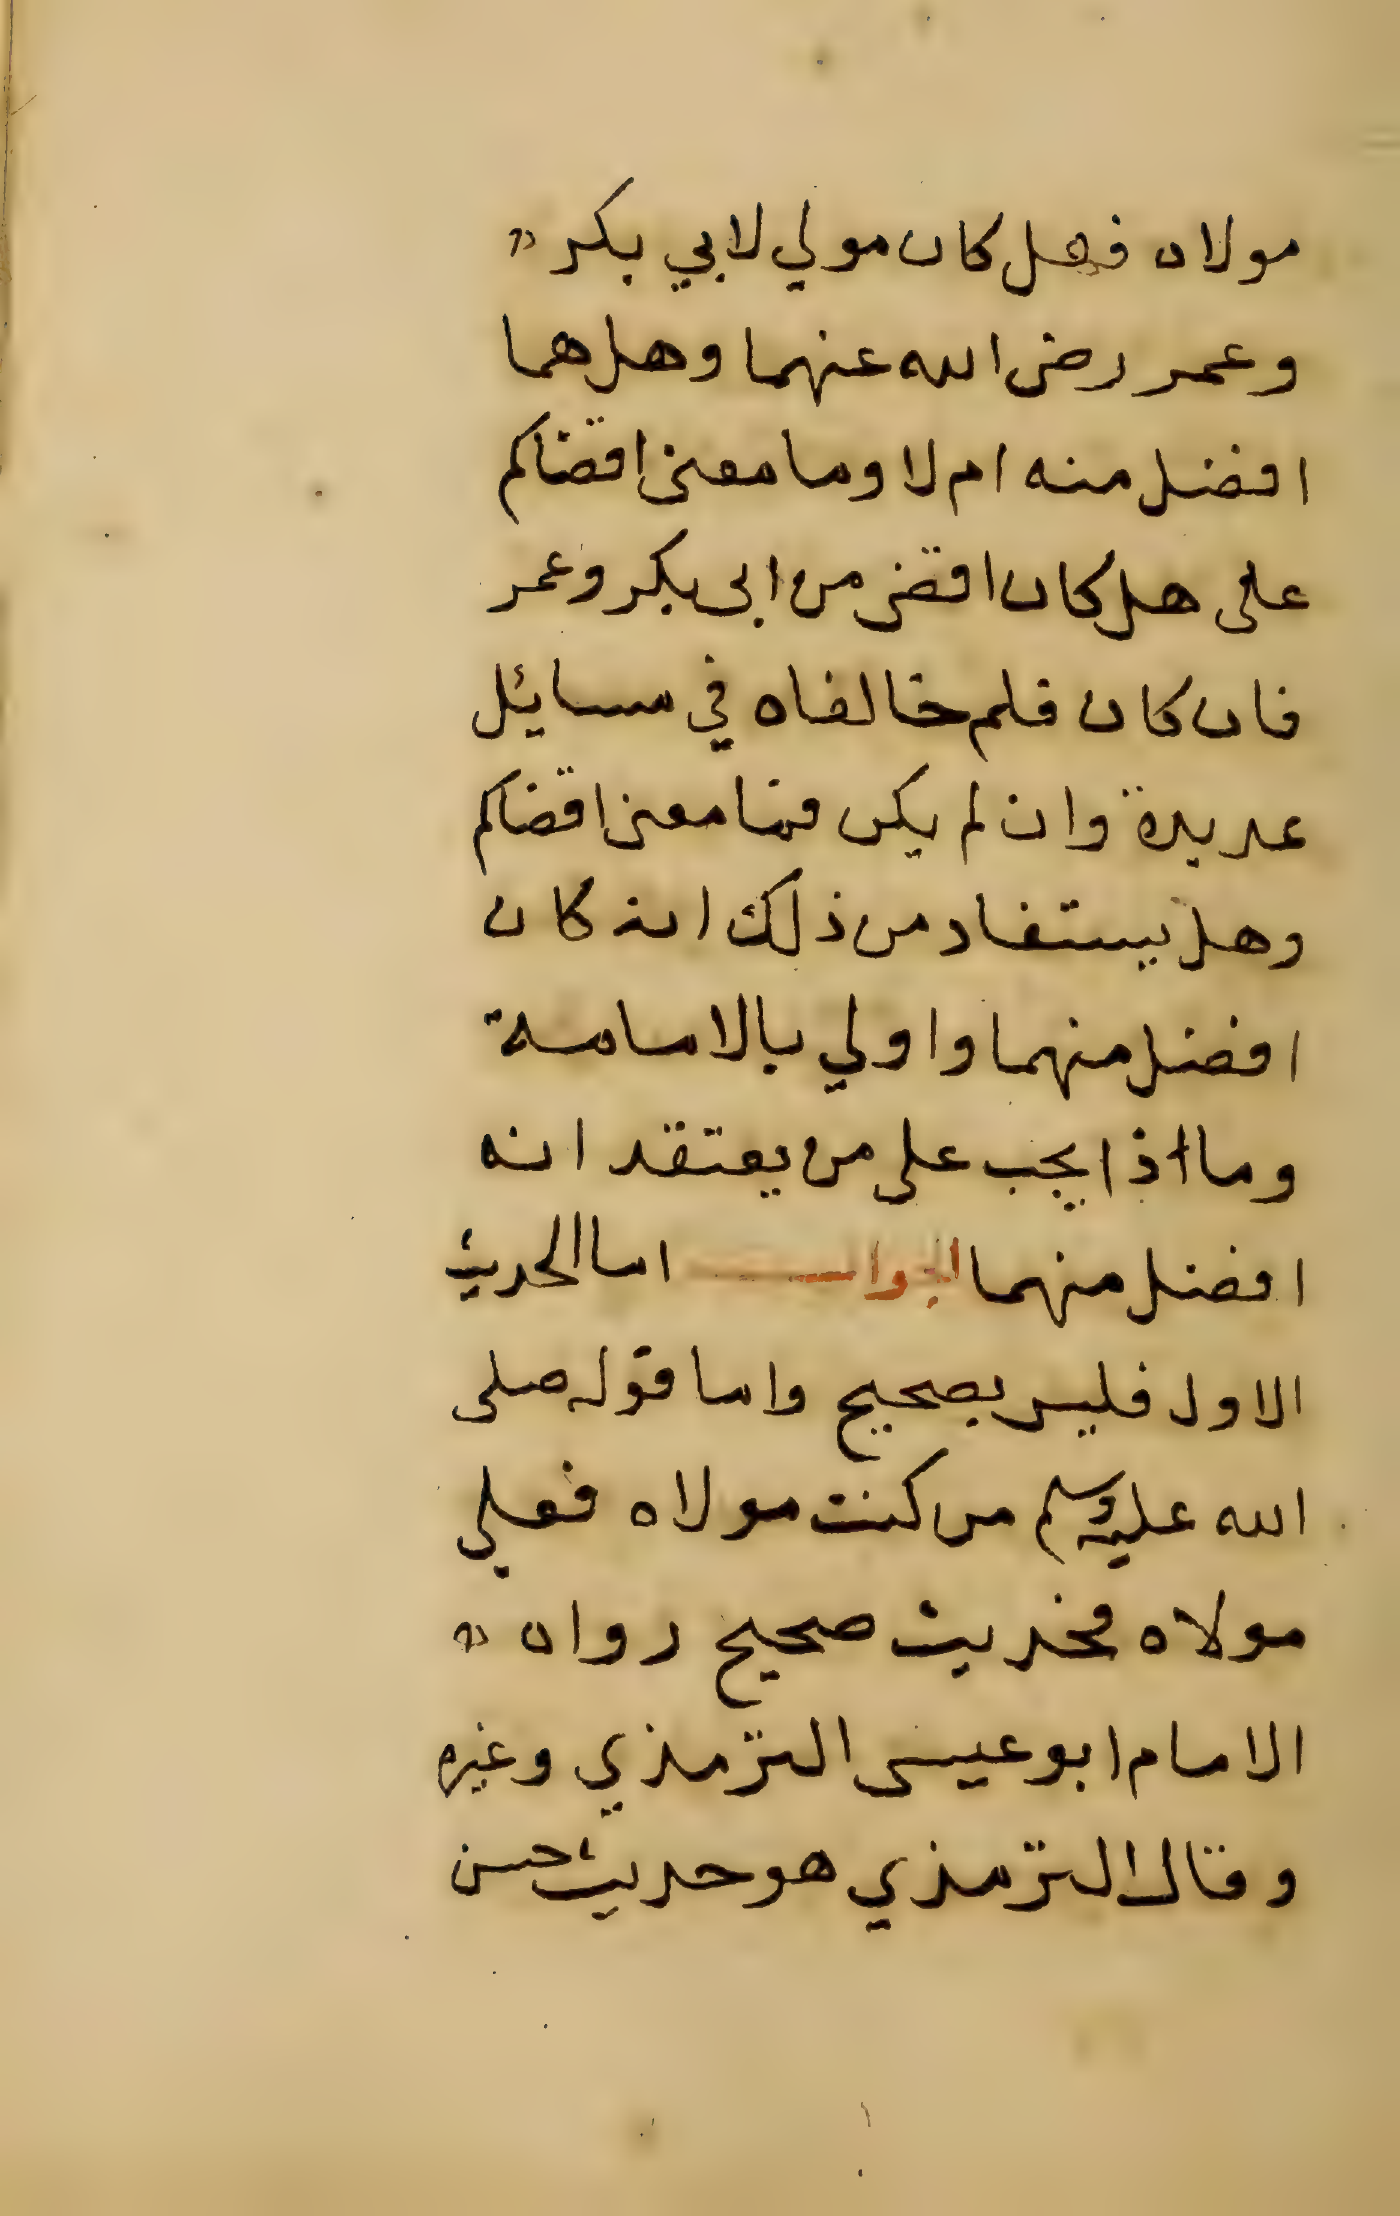 مولاه فهل كان مولي لابي بكر
وعمر رضى الله عنهما وهل هما
افضل منه ام لا وما معنى اقضاكم
على هل كان اقضى من ابى بكر وعمر
فان كان فلم خالفاه في مسايئل
عديدة وان لم يكن فما معنى اقضاكم
وهل يستفاد من ذلك انه كان
افضل منهما واولي بالامامة
وما اذا يجب على من يعتقد انه
افضل منهما الجواب اما الحديث
الاول فليس بصحيح واما قوله صلى
الله عليه وسلم من كنت مولاه فعلي
مولاه فحديث صحيح رواه
الامام ابو عيسى الترمذي وغيره
وقال الترمذي هو حديث حسن